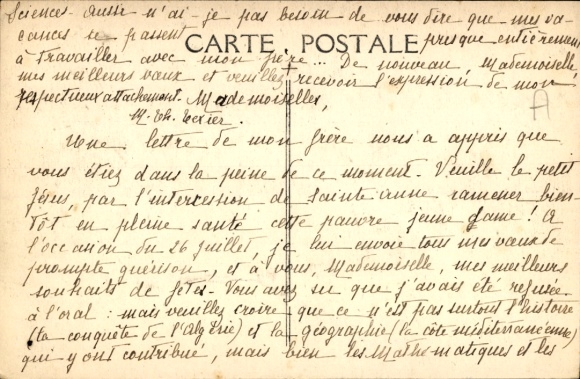 Sciences. Aussi n'ai-je pas besoin de vous dire que mes va-
cances se passent presque entièrement
CARTE POSTALE
à travailler avec mon père... De nouveau, Mademoiselle,
mes meilleurs vœux et veuillez recevoir l'expression de mon
respectueux attachement.
M. Th. Texier.
Mademoiselles,
Une lettre de mon frère nous a appris que
vous étiez dans la peine de ce moment. Veuille le petit
Jésus, par l'intercession de Sainte Anne ramener bien-
tôt en pleine santé cette pauvre jeune dame ! A
l'occasion du 26 Juillet je lui envoie tous mes vœux de
prompte guérison, et à vous, Mademoiselle, mes meilleurs
souhaits de fêtes. Vous avez su que j'avais été refusée
à l'oral : mais veuillez croire que ce n'est pas surtout l'histoire
(la conquête de l'Algérie) et la géographie (la côte méditerranéenne)
qui y ont contribué, mais bien les Mathématiques et les
A